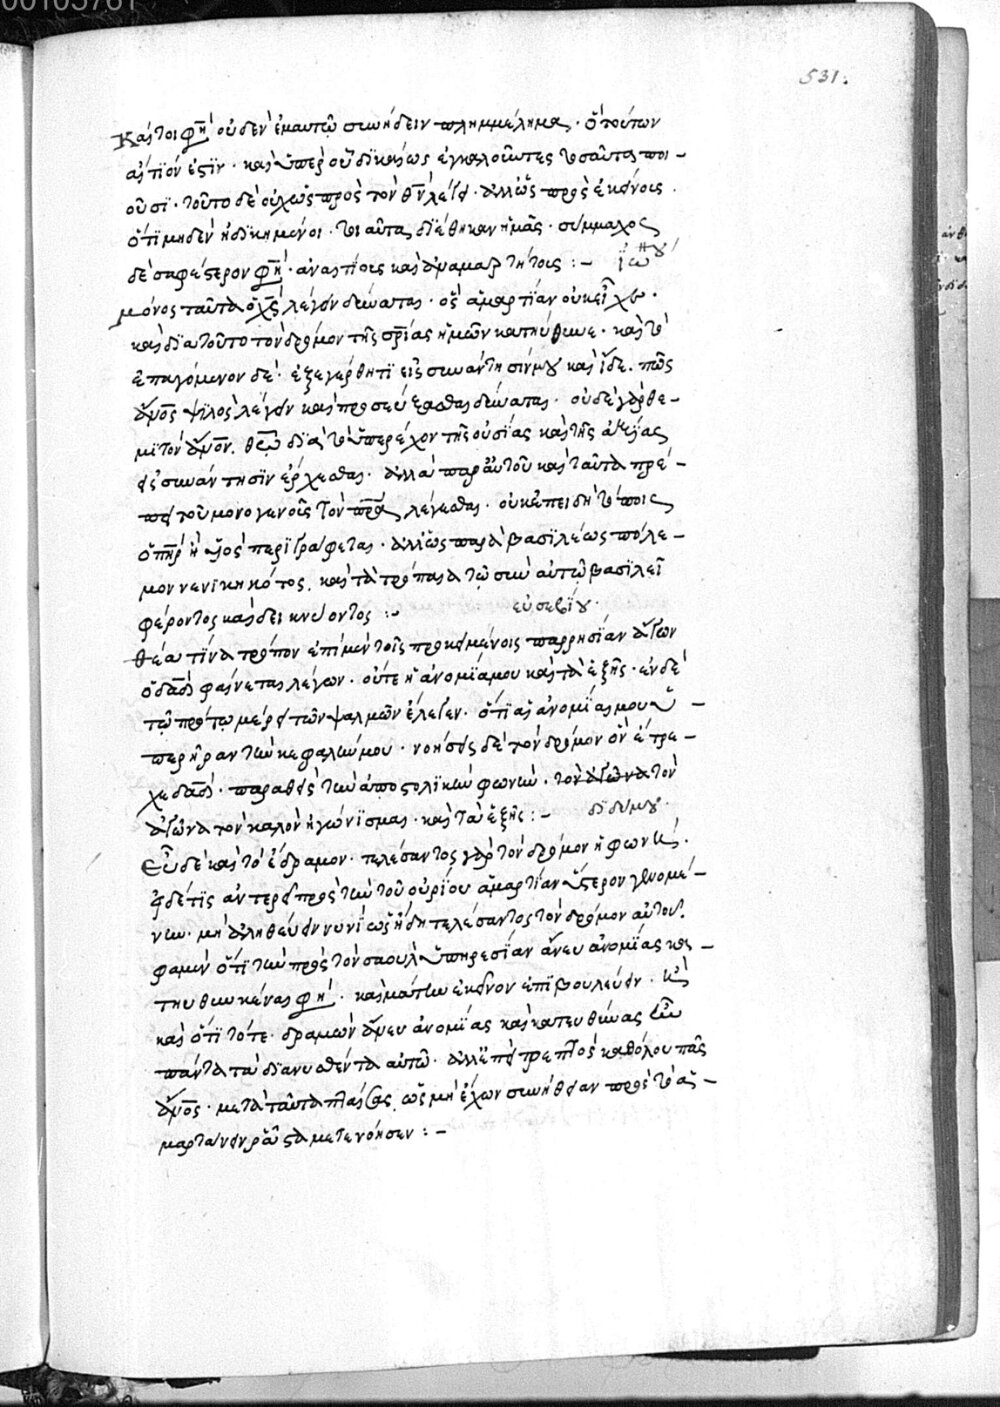 00105761
531.
Καίτοι φη(σὶ) οὐδὲν ἐμαυτῷ συνήδειν πλημμέλημα· ὃ τούτων
αἴτιόν ἐστϊν· καὶ ὑπὲρ οὗ δϊκαίως ἐγκαλοῦντες τοσαῦτα ποι-
οῦσϊ· τοῦτο δὲ οὐχ ὡς πρὸς τὸν θν λέγει· ἀλλ' ὡς πρὸς ἐκείνοις
ὅτϊ μηδὲν ἠδϊκημένοι· τοιαῦτα δϊέθηκαν ἡμᾶς· σύμμαχος
δὲ σαφέστερον φη(σὶ)· ἀναιτίοις καὶ ἀναμαρτήτοις :- ϊω ου
μόνος ταῦτα ὁ χς λέγειν δύναται· ὃς ἁμαρτίαν οὐκ εἶχεν·
καὶ δϊὰ τοῦτο τὸν δρόμον τῆς σρίας ἡμῶν κατηύθυνε· καὶ τὸ
ἐπαγόμενον δὲ· ἐξεγέρθητϊ εἰς συνάντησίν μου καὶ ἴδε. πῶς
ἄνος ψϊλὸς λέγειν καὶ προσεύξασθαι δύναται· οὐδὲ γὰρ θε-
μϊτὸν ἄνον. θεῷ δϊὰ τὸ ὑπερέχον τῆς οὐσίας καὶ τῆς ἀξίας
εἰς συνάντησϊν ἔρχεσθαι· ἀλλὰ παρ' αὐτοῦ καὶ ταῦτα πρέ-
πει τοῦ μονογενοῦς τὸν πρα λέγεσθαι· οὐκ ἐπειδὴ τόποις
ὁ πηρ ἢ υἱὸς περϊγράφεται· ἀλλ' ὡς παρὰ βασϊλέως πόλε-
μον νενϊκηκότος, καὶ τὰ τρόπαια τῷ σὺν αὐτῷ βασϊλεῖ
φέροντος καὶ δεικνύοντος :- εὐσεβϊου·
θέα τίνα τρόπον ἐπὶ μὲν τοῖς προκειμένοις παρρησϊαν ἄγων
ὁ δαδ φαίνεται λέγων· οὔτε ἡ ἀνομϊα μου καὶ τὰ ἑξῆς· ἐν δὲ
τῷ πρώτῳ μέρει τῶν ψαλμῶν ἔλεγεν· ὅτϊ αἱ ἀνομϊαι μου ὑ-
περῆραν τὴν κεφαλήν μου· νοήσεις δὲ τὸν δρόμον ὃν ἔτρε-
χε δαδ· παραθεὶς τὴν ἀποστολϊκὴν φωνὴν· τὸν ἀγῶνα τὸν
ἀγῶνα τὸν καλὸν ἠγώνϊσμαι· καὶ τὰ ἑξῆς :- δϊδυμου·
Εὖ δὲ καὶ τὸ ἔδραμον· τελέσαντος γὰρ τὸν δρόμον ἡ φωνή·
εἰ δέ τϊς ἀντερεῖ πρὸς τὴν τοῦ οὐρίου ἁμαρτϊαν ὕστερον γενομέ-
νην· μὴ ἀληθεύειν νυνϊ ὡς ἤδη τελέσαντος τὸν δρόμον αὐτοῦ·
φαμὲν ὅτϊ τὴν πρὸς τὸν σαοὺλ ὑπηρεσϊαν ἄνευ ἀνομϊας κα-
τηυθυνκέναι φη(σὶ)· καὶ μάτην ἐκεῖνον ἐπϊβουλεύειν· καὶ
καὶ ὅτϊ τότε· δραμὼν ἄνευ ἀνομϊας καὶ κατευθύνας ἦν
πάντα τὰ δϊανυσθέντα αὐτῷ· ἀλλ' ἐπεὶ τρεπτὸς καθόλου πᾶς
ἄνος· μετὰ ταῦτα πταίσας, ὡς μὴ ἔχων συνήθειαν πρὸς τὸ ἁ-
μαρτάνειν ῥᾷστα μετενόησεν :-